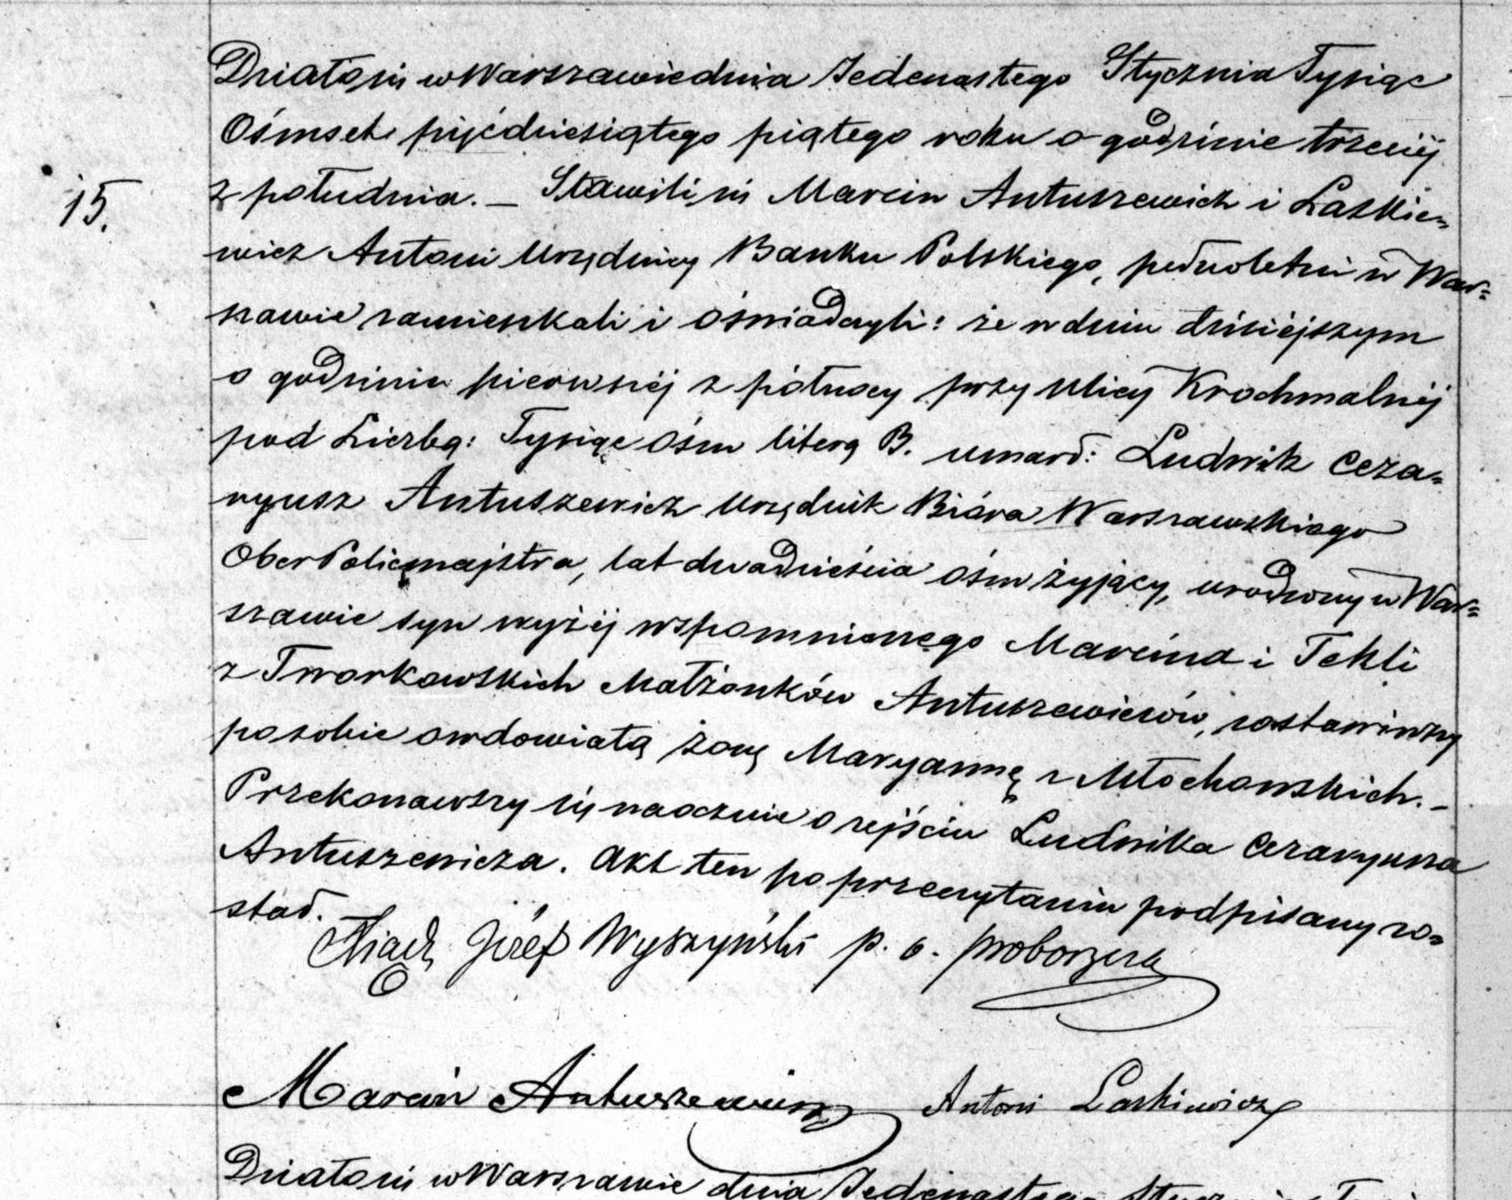 Działo się w Warszawie dnia Jedenastego Stycznia Tysiąc
Ośmset pięćdziesiątego piątego roku o godzinie trzeciéj
15.
z południa. – Stawili się Marcin Antuszewicz i Laskie=
wicz Antoni Urzędnicy Banku Polskiego, pełnoletni w War=
szawie zamieszkali i oświadczyli: że w dniu dzisiéjszym
o godzinie pierwszéj z północy przy ulicy Krochmalnéj
pod Liczbą: Tysiąc ośm literą B. umarł: Ludwik Ceza=
ryusz Antuszewicz Urzędnik Bióra Warszawskiego
OberPolicmajstra, lat dwadzieścia ośm żyjący, urodzony w War=
szawie syn wyżéj wspomnionego Marcina i Tekli
z Tworkowskich Małżonków Antuszewiczów, zostawiwszy
po sobie owdowiałą żonę Maryannę z Młochowskich. –
Przekonawszy się naocznie o zejściu Ludwika Cezaryusza
Antuszewicza. Akt ten po przeczytaniu podpisany zo=
stał.
Xiądz Józef Wyszyński p. o. proboszcza
Marcin Antuszewicz Antoni Laskiewicz
Działo się w Warszawie dnia Jedenastego